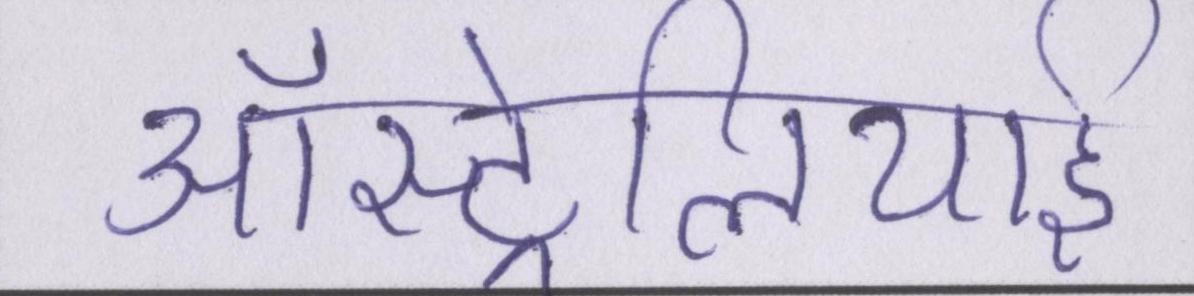 ऑस्ट्रेलियाई